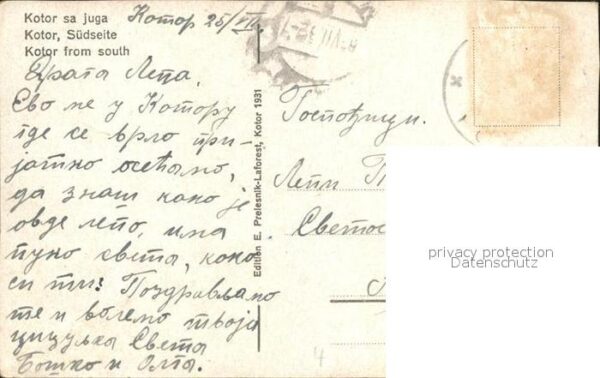 Kotor sa juga
Kotor, Südseite
Kotor from south
Котор 25/VII.
Драга Лепа,
Ево ме у Котору
где се врло при-
јатно осећамо,
да знаш како је
овде лепо, има
пуно света, како
си ти? Поздрављамо
те и волемо твоја
Света
Бошко и Олга.
Edition E. Prelesnik-Laforest, Kotor 1931
Госпођици
Лепи
Светос
privacy protection
Datenschutz
4